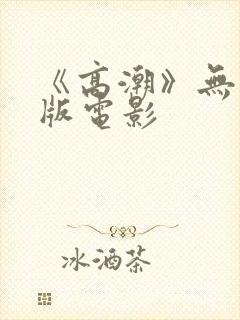 《高潮》無
版電影
冰酒茶